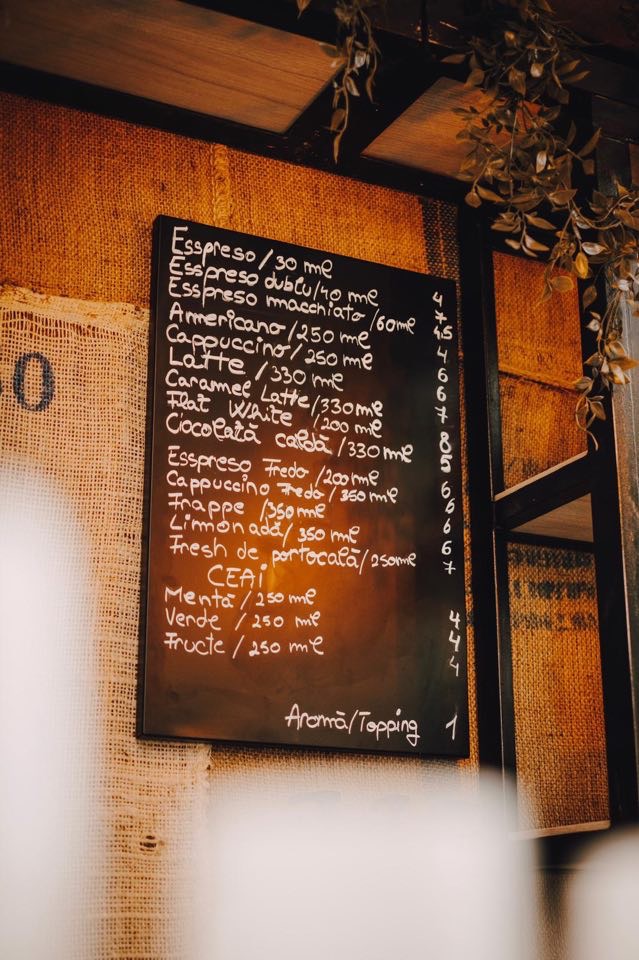 Esspreso/30 ml 4
Esspreso dublu/40 ml 7
Esspreso macchiato/60ml 4,5
Americano/250 ml 4
Cappuccino/250 ml 6
Latte/330 ml 6
Caramel Latte/330 ml 7
Flat White/200 ml 8
Ciocolată caldă/330 ml 5
Esspreso Fredo/200 ml 6
Cappuccino Fredo/350 ml 6
Frappe/350 ml 6
Limonadă/350 ml 6
Fresh de portocală/250ml 7
CEAi
Mentă/250 ml 4
Verde/250 ml 4
Fructe/250 ml 4
Aromă/Topping 1